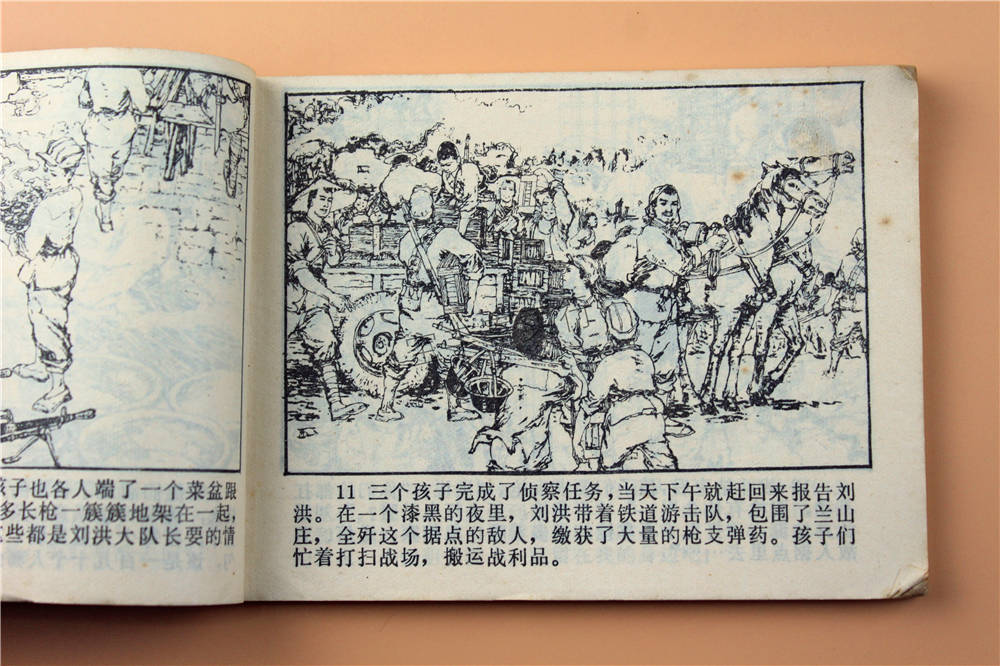 孩子也各人端了一个菜盆跟
多长枪一簇簇地架在一起，
这些都是刘洪大队长要的情
11 三个孩子完成了侦察任务，当天下午就赶回来报告刘
洪。在一个漆黑的夜里，刘洪带着铁道游击队，包围了兰山
庄，全歼这个据点的敌人，缴获了大量的枪支弹药。孩子们
忙着打扫战场，搬运战利品。